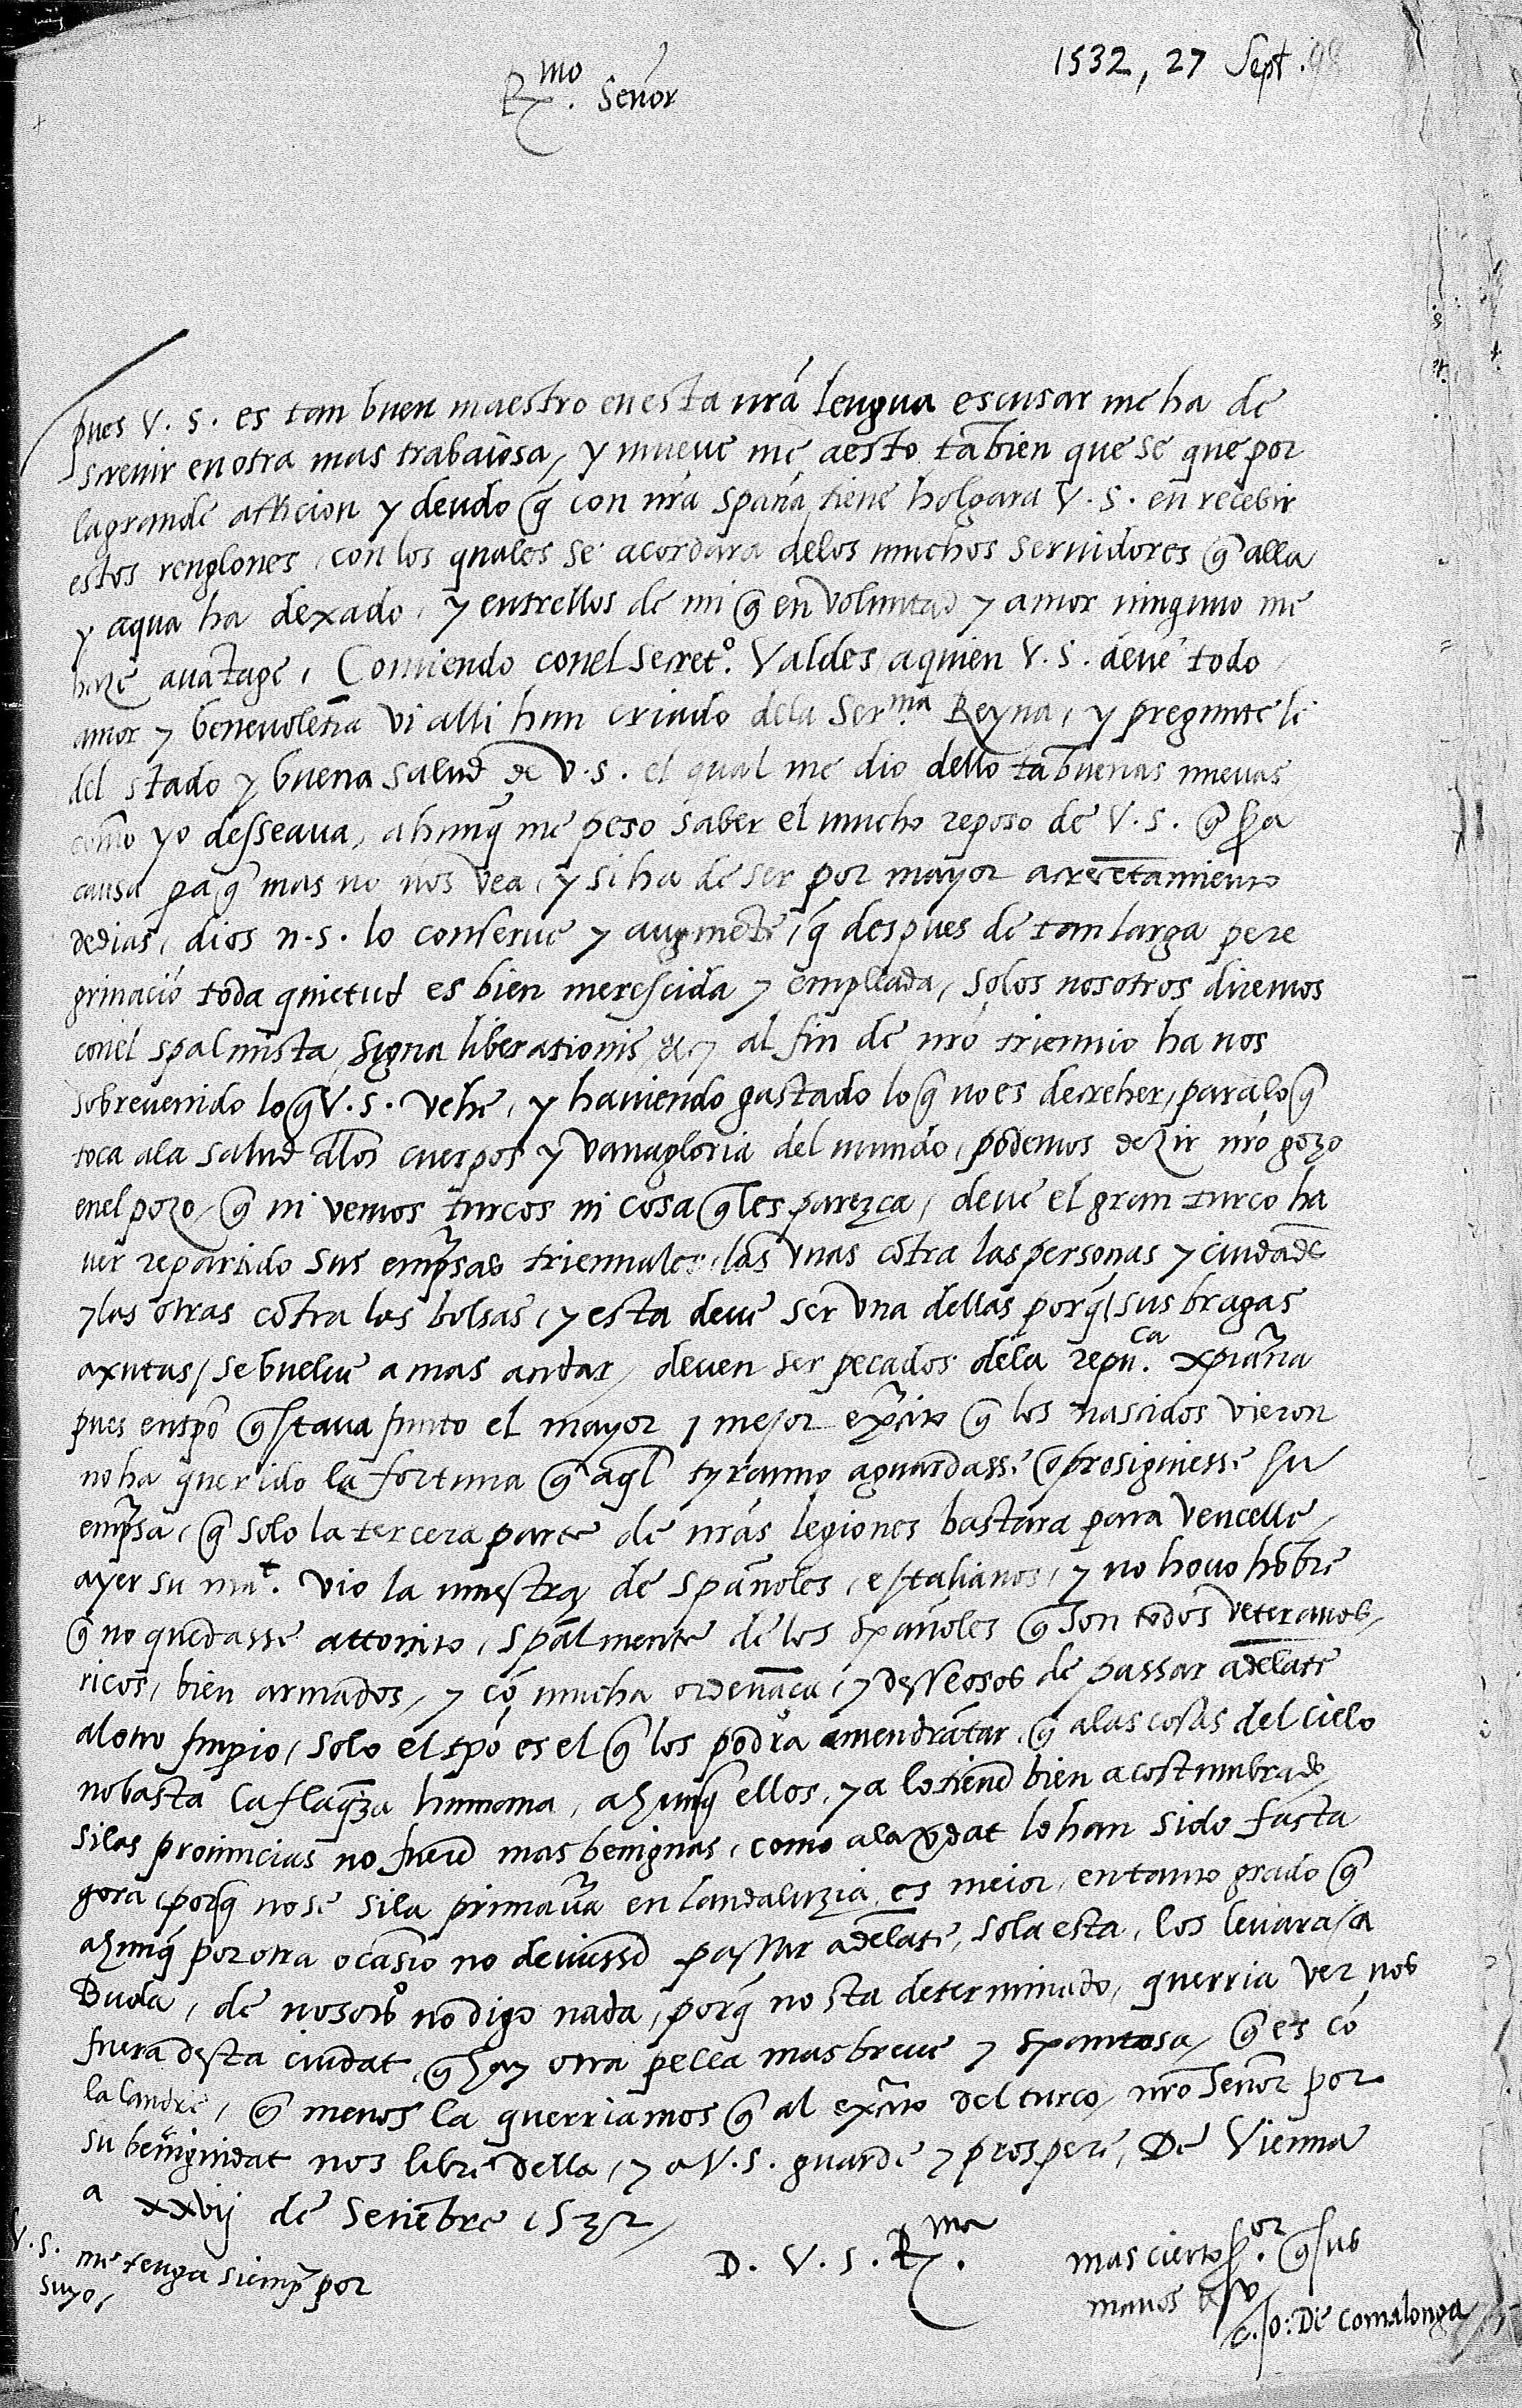 1532, 27 Sept. 98
Rmo. Señor
pues V. S. es tan buen maestro en esta nrá lengua escusar me ha de
screuir en otra mas trabaiosa, y mueue me a esto tãbien que se que por
la grande afficion y deudo q̃ con nrá spaña tiene holgara V. S. en recebir
estos renglones, con los quales se acordara delos muchos seruidores q̃ alla
y aqua ha dexado, y entrellos de mi q̃ en voluntad y amor ninguno me
haze auãtage, Comiendo conel Secretº. Valdes aquien V. S. deue todo
amor y beneuolẽtia vi alli hun criado dela Serma Reyna, y pregunte le
del stado y buena salud de V. S. el qual me dio dello tã buenas nueuas
como yo desseaua, ahunq̃ me peso saber el mucho reposo de V. S. q̃ sera
causa pa q̃ mas no nos vea, y si ha de ser por mayor acrecẽtamiento
de dias, dios n. s. lo conserue y augmẽte, q̃ despues de tan larga pere
grinació toda quietud es bien merescida y empleada, solos nosotros diremos
conel spalmista, signa liberationis, &c, al fin de nró triennio ha nos
sobreuenido lo q̃ V. S. vehe, y hauiendo gastado lo q̃ no es de creher, para lo q̃
toca ala salud dlos cuerpos y vanagloria del mundo, podemos dezir nró gozo
enel pozo, q̃ ni vemos turcos ni cosa q̃ les parezca, deue el gran turco ha
uer repartido sus emp̃sas triennales, las vnas cõtra las personas y ciudades
y las otras cõtra las bolsas, y esta deue ser vna dellas porq̃ sus bragas
axutas, se buelue a mas andar, deuen ser pecados dela repuca. xp̃iana
pues en tp̃o q̃ staua junto el mayor y mejor exc̃ito q̃ los nascidos vieron
no ha querido la fortuna q̃ aql̃ tyranno aguardasse q̃ prosiguiesse su
emp̃sa, q̃ solo la tercera parte de nrás legiones bastara para vencelle,
ayer su mat. vio la muestra de spañoles, e ytalianos, y no houo hõbre
q̃ no quedasse attonito, sp̃almente de los spañoles q̃ son todos veteranos,
ricos, bien armados, y có mucha ordenãça, y desseosos de passar adelãte
al otro Imp̃io, solo el tp̃o es el q̃ los podra amendrãtar, q̃ alas cosas del cielo
no basta la flaq̃za humana, ahunq̃ ellos, ya lo tienẽ bien acostumbrado,
si las prouincias no fuerẽ mas benignas, como ala ṽdat lo han sido fasta
gora, porq̃ no se si la primaṽa en landaluzia es meior, en tanto grado q̃
ahunq̃ por otra ocasió no deuiessẽ passar adelãte, sola esta, los leuara, a
Buda, de nosotrº no digo nada, porq̃ no sta determinado, querria ver nos
fuera desta ciudat, q̃ hay otra pelea mas breue y spantosa, q̃ es có
la landre, q̃ menos la querriamos q̃ al exc̃ito del turco, nró Señor por
su beninignidat nos libre della, y a V. S. guarde y prospere, De Vienna
a xxvij de Setiẽbre 1532,
V. S. me tenga siemp̃ por
suyo,
D. V. S. Rma.
mas cierto sor. q̃ sus
manos b
de Comalonga